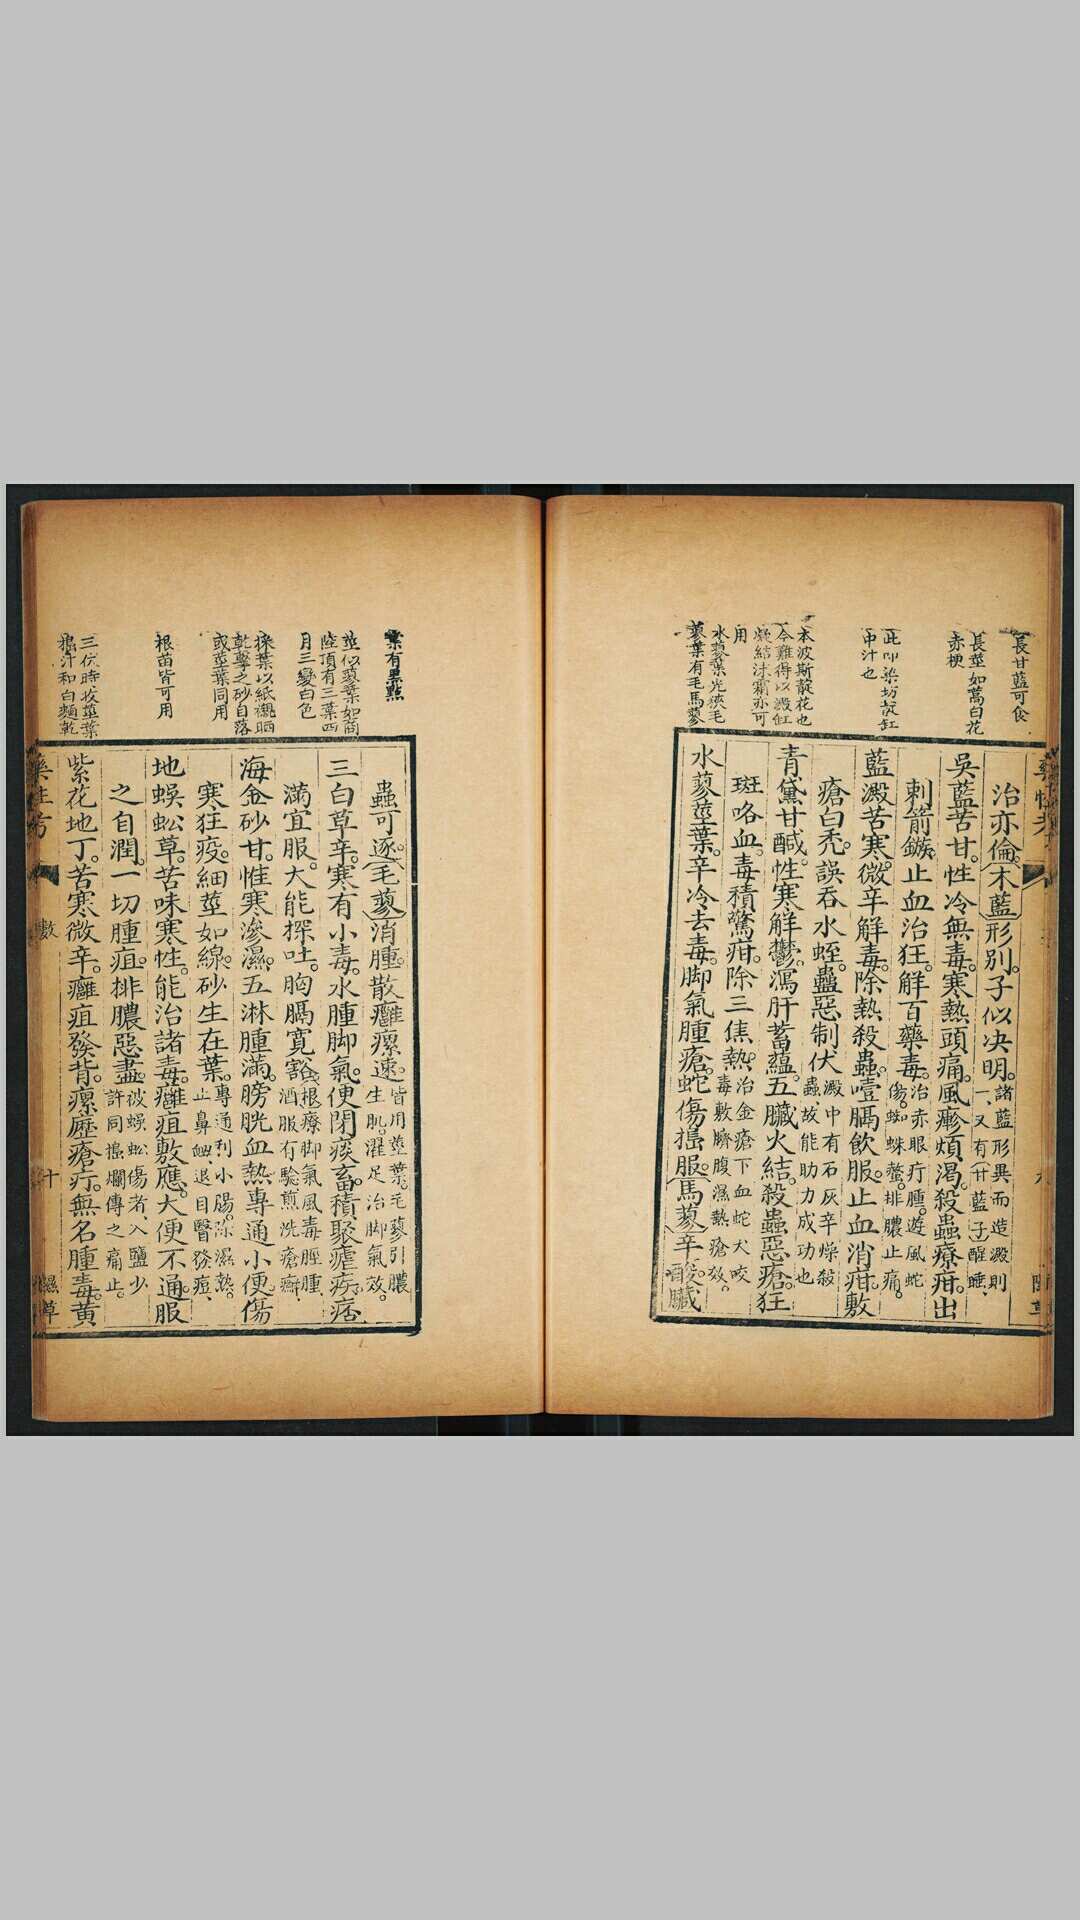 長甘藍可食
長莖如蒿白花
赤梗
此卽染坊靛缸
中汁也
本波斯靛花也
今難得以澱缸
凝結沫霜亦可
用
水蓼葉光狹毛
蓼葉有毛馬蓼
治亦倫。木藍形別。子似决明。諸藍形異而造澱則
一、又有甘藍子醒睡、
吳藍苦甘。性冷無毒。寒熱頭痛。風癊煩渴。殺蟲療疳。出
刺箭鏃。止血治狂。解百藥毒。治赤眼疔腫。遊風蛇
傷。蜘蛛螫。排膿止痛。
藍澱苦寒。微辛解毒。除熱殺蟲。噎膈飲服。止血消疳。敷
瘡白禿。誤吞水蛭。蠱惡制伏。澱中有石灰辛燥殺
蟲、故能助力成功也
青黛甘鹹。性寒解鬱。瀉肝蓄蘊。五臟火結。殺蟲惡瘡。狂
斑咯血。毒積驚疳。除三焦熱。治金瘡下血蛇犬咬
毒敷臍腹濕熱瘡效。
水蓼莖葉。辛冷去毒。脚氣腫瘡。蛇傷搗服。馬蓼辛酸。臟
葉有黑點
莖似蓼葉如商
陸頂有三葉四
月三變白色
採葉以紙襯晒
乾擊之砂自落
或莖葉同用
根苗皆可用
三伏時收莖葉
搗汁和白麵乾
蟲可逐。毛蓼消腫。散癰瘰速。皆用莖葉。毛蓼引膿
生肌。濯足治脚氣效。
三白草辛。寒有小毒。水腫脚氣。便閉痰畜。積聚瘧疾。痞
滿宜服。大能探吐。胸膈寬豁。根療脚氣風毒脛腫、
酒服有驗煎洗瘡癬、
海金砂甘。惟寒滲濕。五淋腫滿。膀胱血熱。專通小便。傷
寒狂疫。細莖如線。砂生在葉。專通利小腸。除濕熱。
止鼻衄退目瞖發痘、
地蜈蚣草。苦味寒性。能治諸毒。癰疽敷應。大便不通。服
之自潤。一切腫疽。排膿惡盡。被蜈蚣傷者、入鹽少
許同搗爛傅之痛止。
紫花地丁。苦寒微辛。癰疽發背。瘰癧瘡疔。無名腫毒。黃
藥性考
十
濕草